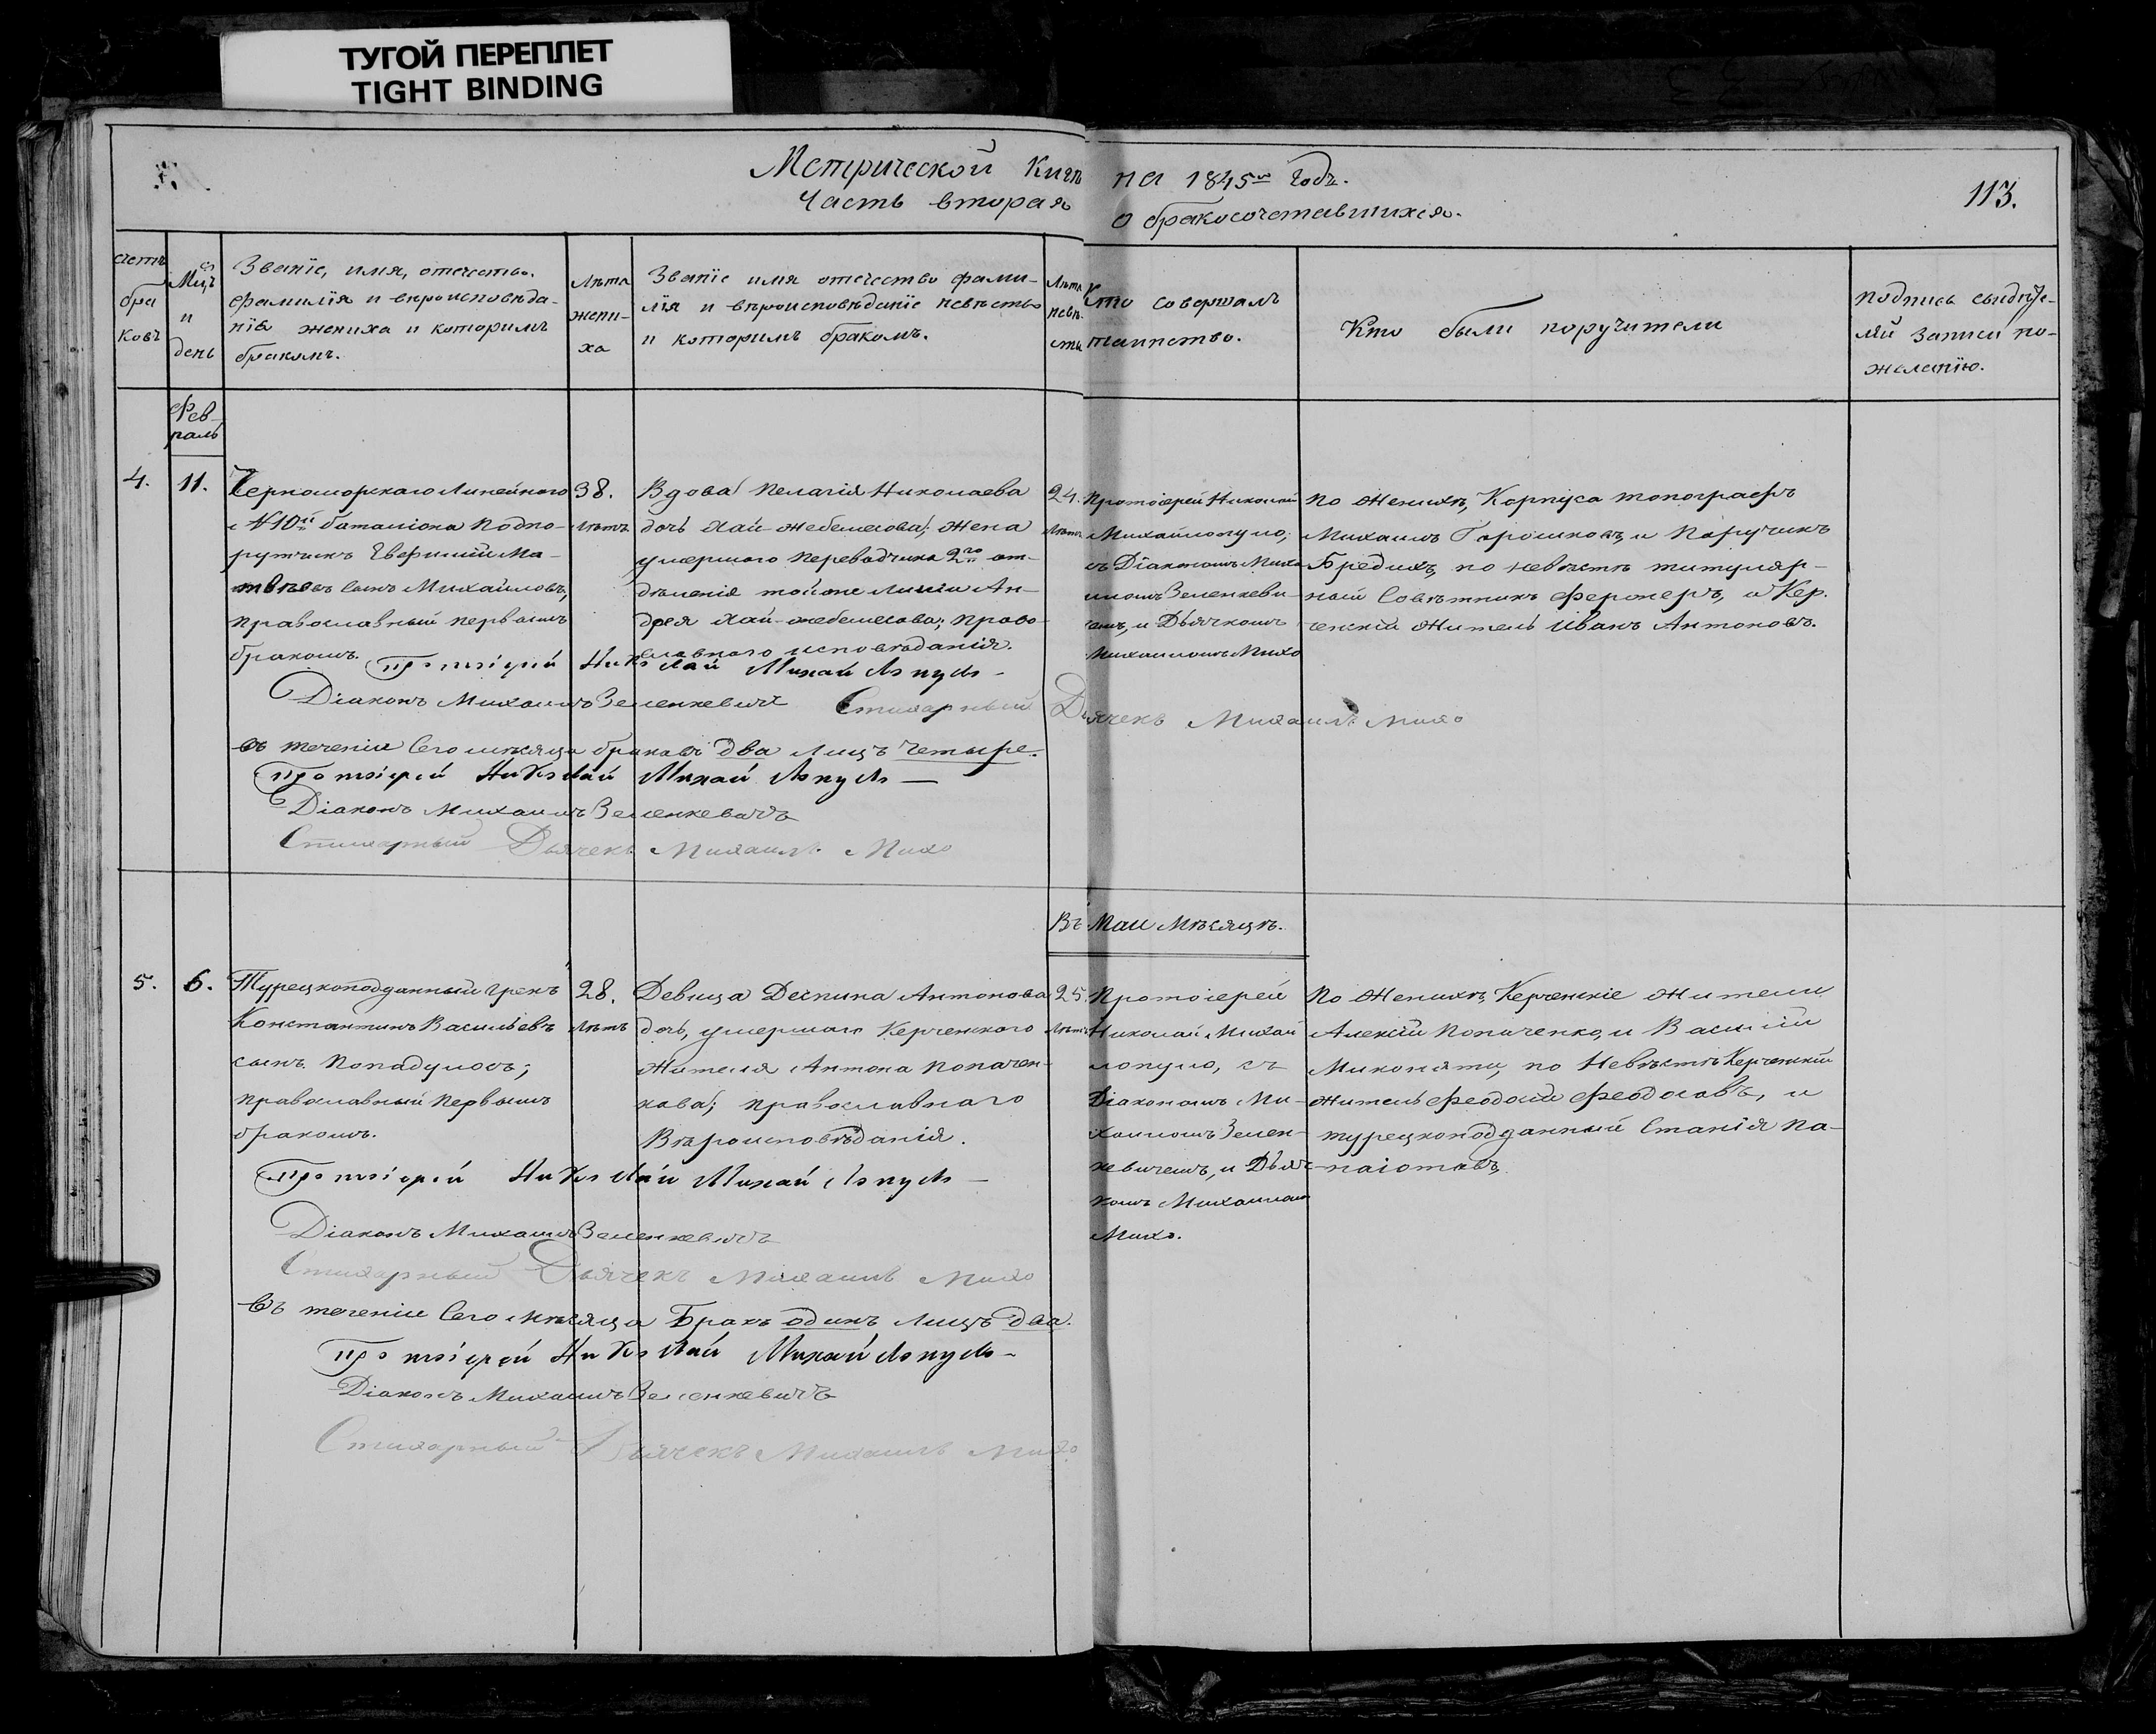 ТУГОЙ ПЕРЕПЛЕТ
TIGHT BINDING
Метрической Книгѣ на 1845й годъ.
Часть вторая о бракосочетавшихся.
113.
счетъ
бра
ковъ
Мцъ
и
день
Званіе, имя, отечество,
фамилія и вѣроисповѣда-
ніе жениха и которимъ
бракомъ.
Лѣта
жени-
ха
Званіе имя отечество фами-
лія и вѣроисповѣданіе невѣсты
и которимъ бракомъ.
Лѣта
невѣ-
сты
Кто совершалъ
таинство.
Кто были поручители
подпись свидѣте-
лей записи по-
желанію.
Фев-
раль
4.
11.
Черноморскаго Линейнаго
№ 10й баталіона Подпо-
рутчикъ Евфимій Ма-
твѣевъ сынъ Михайловъ,
православный первымъ
бракомъ.
38.
лѣтъ
Вдова Пелагія Николаева
дочь Хаи-жебелегова; жена
умершаго Переводчика 2го от-
дѣленія тойже линіи Ан-
дрея Хаи-жебелегова; право-
славнаго исповѣданія.
24.
лѣтъ
Протоіерей Николай
Михайлопуло,
съ Діакономъ Миха
иломъ Зеленкеви-
чемъ, и Дьячкомъ
Михаиломъ Михо
По Женихѣ, Корпуса топографъ
Михаилъ Горошковъ, и Поручикъ
Бредихъ, по невѣстѣ титуляр-
ный Совѣтникъ Феронеръ, и Кер-
ченскій житель Иванъ Антоновъ.
Протоіерей Николай Михайлопуло
Діаконъ Михаилъ Зеленкевичъ Стихарный Дьячекъ Михаилъ Михо
Въ теченіи Сего мѣсяца браковъ два лицъ четыре.
Протоіерей Николай Михайлопуло
Діаконъ Михаилъ Зеленкевичъ
Стихарный Дьячекъ Михаилъ Михо
Въ Маи Мѣсяцѣ.
5.
6.
Турецкоподданный грекъ
Константинъ Васильевъ
сынъ Попадулосъ;
православный первымъ
бракомъ.
28.
лѣтъ
Девица Деспина Антонова
дочь, умершаго Керченского
жителя Антона Попачен-
кова; православнаго
Вѣроисповѣданія.
25.
лѣтъ
Протоіерей
Николай Михай
лопуло, съ
Діакономъ Ми-
хаиломъ Зелен-
кевичемъ, и Дьяч-
комъ Михаиломъ
Михо.
По Женихѣ, Керченскіе Жители
Алексій Попаченко, и Василій
Миконяти, по Невѣстѣ Керченскій
житель Феодосій Феодосовъ, и
турецкоподданный Стакія Па-
наіотовъ.
Протоіерей Николай Михайлопуло
Діаконъ Михаилъ Зеленкевичъ
Стихарный Дьячекъ Михаилъ Михо
Въ теченіи Сего мѣсяца Бракъ одинъ лицъ два.
Протоіерей Николай Михайлопуло
Діаконъ Михаилъ Зеленкевичъ
Стихарный Дьячекъ Михаилъ Михо